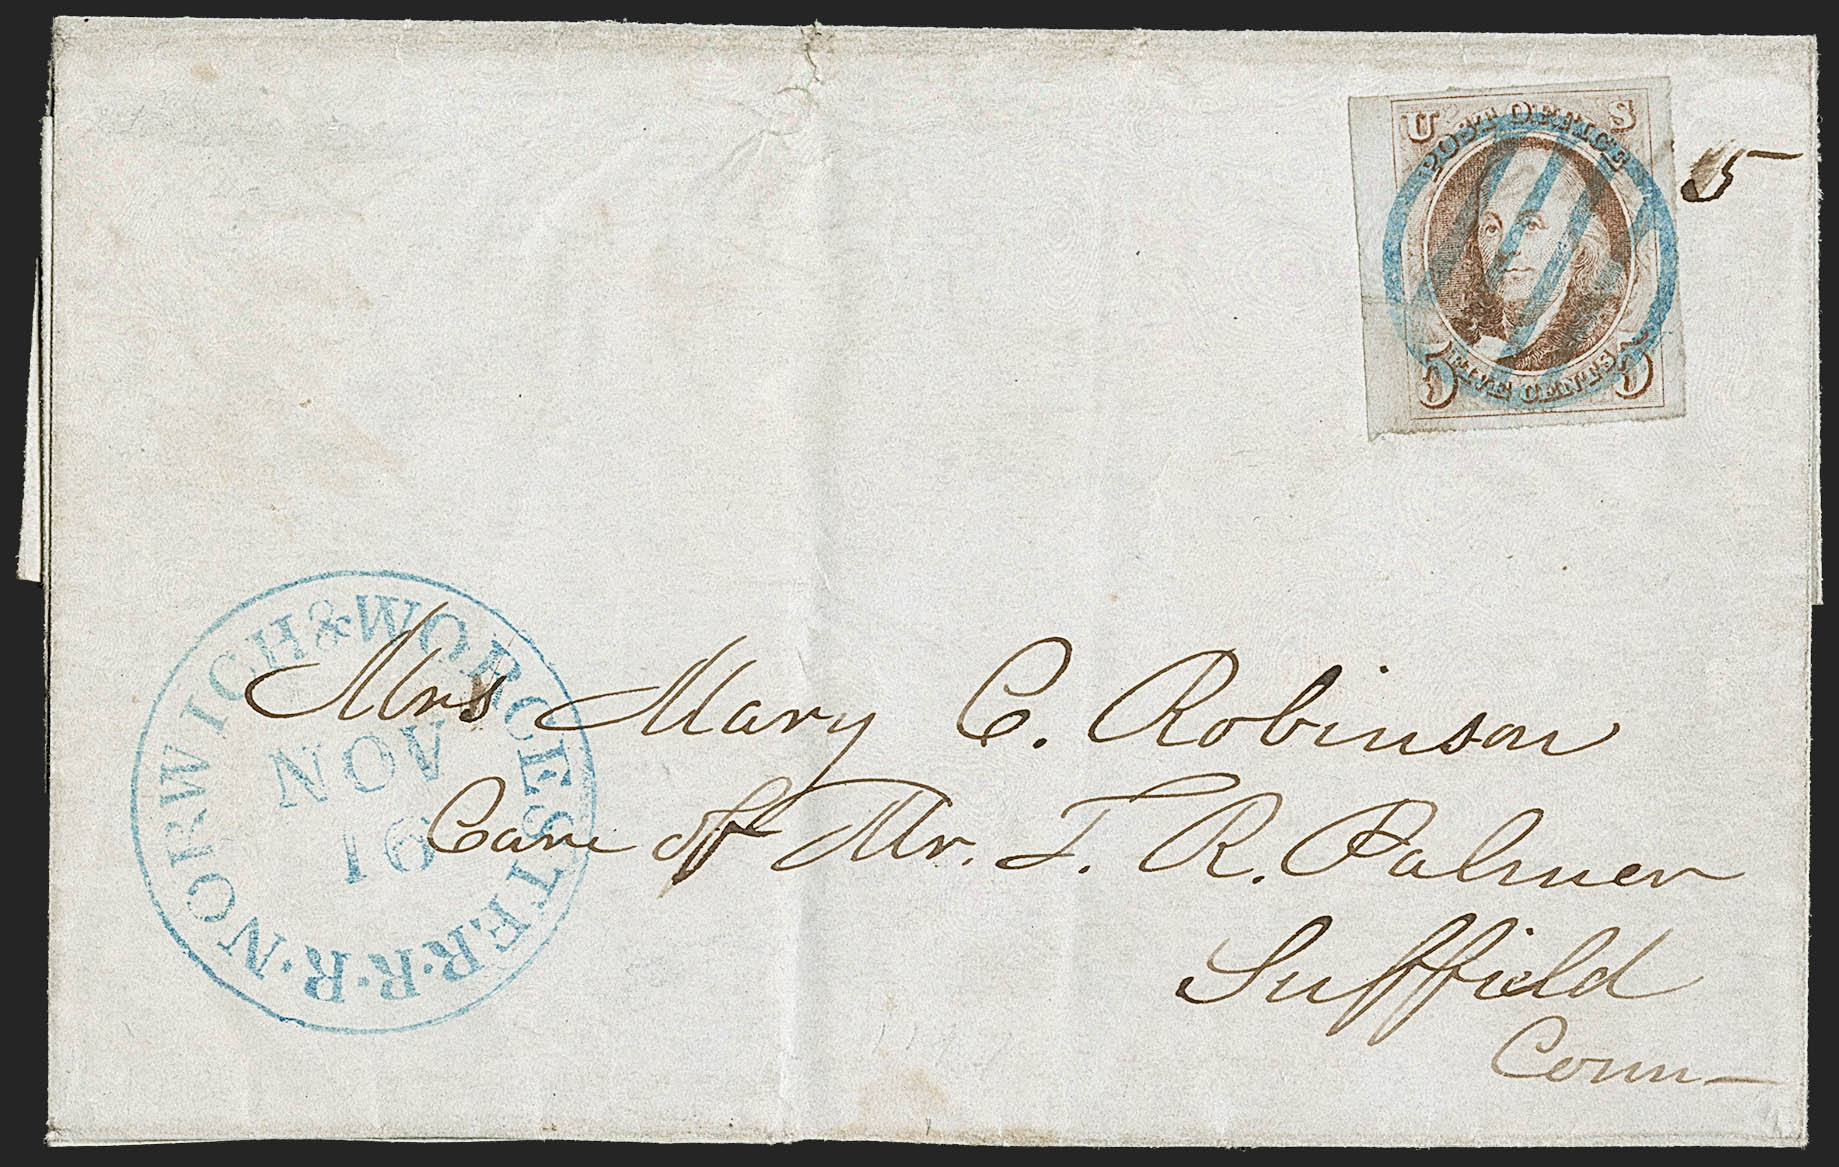 U S
POST OFFICE
FIVE CENTS
5 5
5
NORWICH & WORCESTER. R. R.
NOV
16
Mrs Mary C. Robinson
Care of Mr. T. R. Palmer
Suffield
Conn